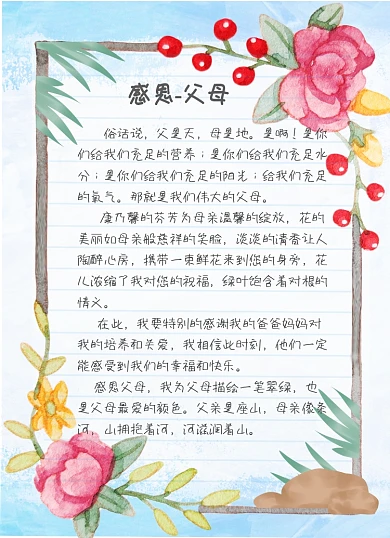 感恩-父母
俗话说，父是天，母是地。是啊！是你
们给我们充足的营养；是你们给我们充足水
分；是你们给我们充足的阳光；给我们充足
的氧气。那就是我们伟大的父母。
康乃馨的芬芳为母亲温馨的绽放，花的
美丽如母亲般慈祥的笑脸，淡淡的清香让人
陶醉心房，携带一束鲜花来到您的身旁，花
儿浓缩了我对您的祝福，绿叶饱含着对根的
情义。
在此，我要特别的感谢我的爸爸妈妈对
我的培养和关爱，我相信此时刻，他们一定
能感受到我们的幸福和快乐。
感恩父母，我为父母描绘一笔翠绿，也
是父母最爱的颜色。父亲是座山，母亲像条
河，山拥抱着河，河滋润着山。